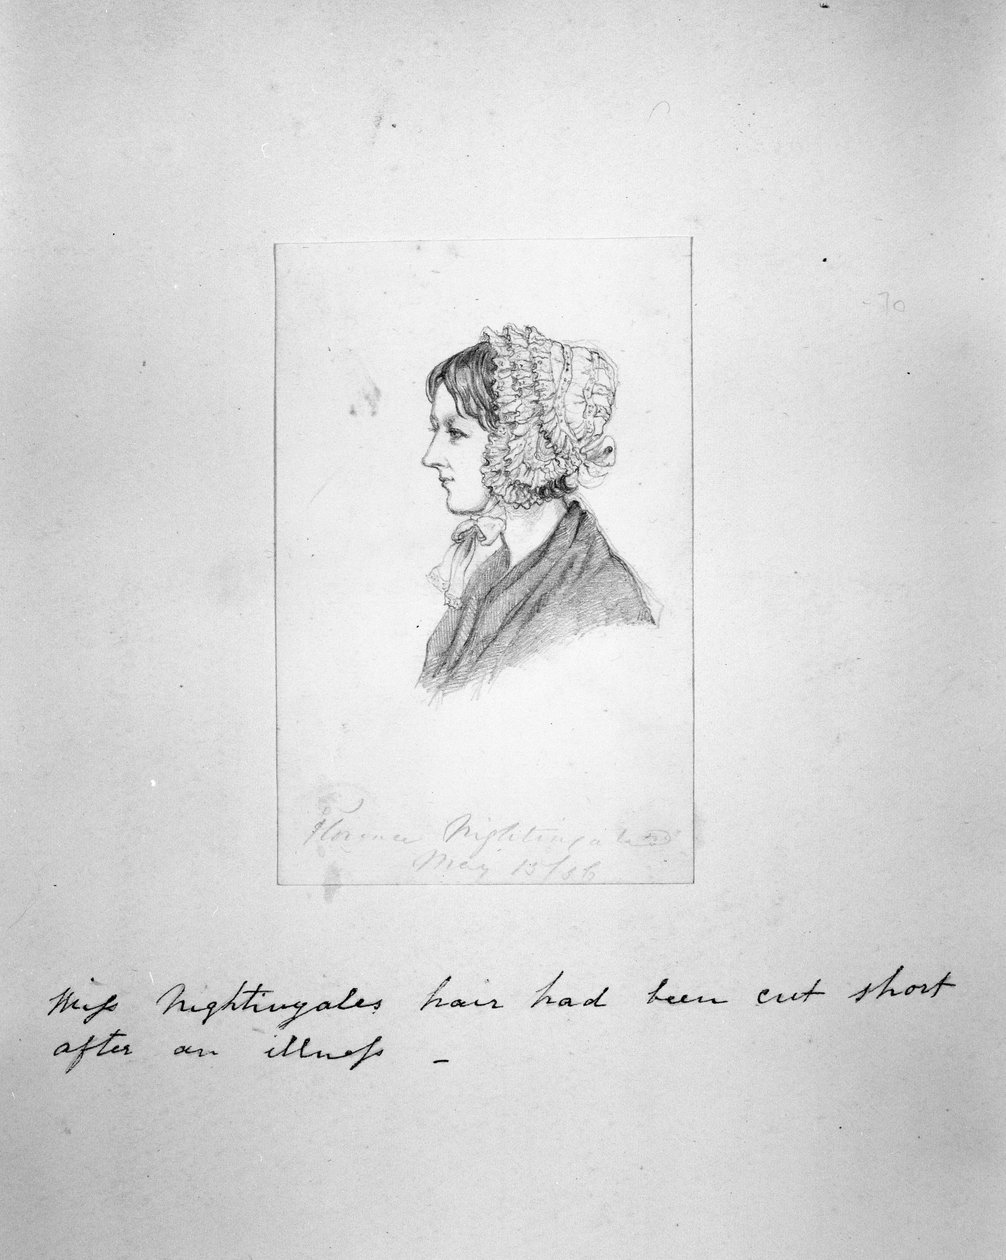 Florence Nightingale
May 13/56
Miss Nightingales hair had been cut short
after an illness -